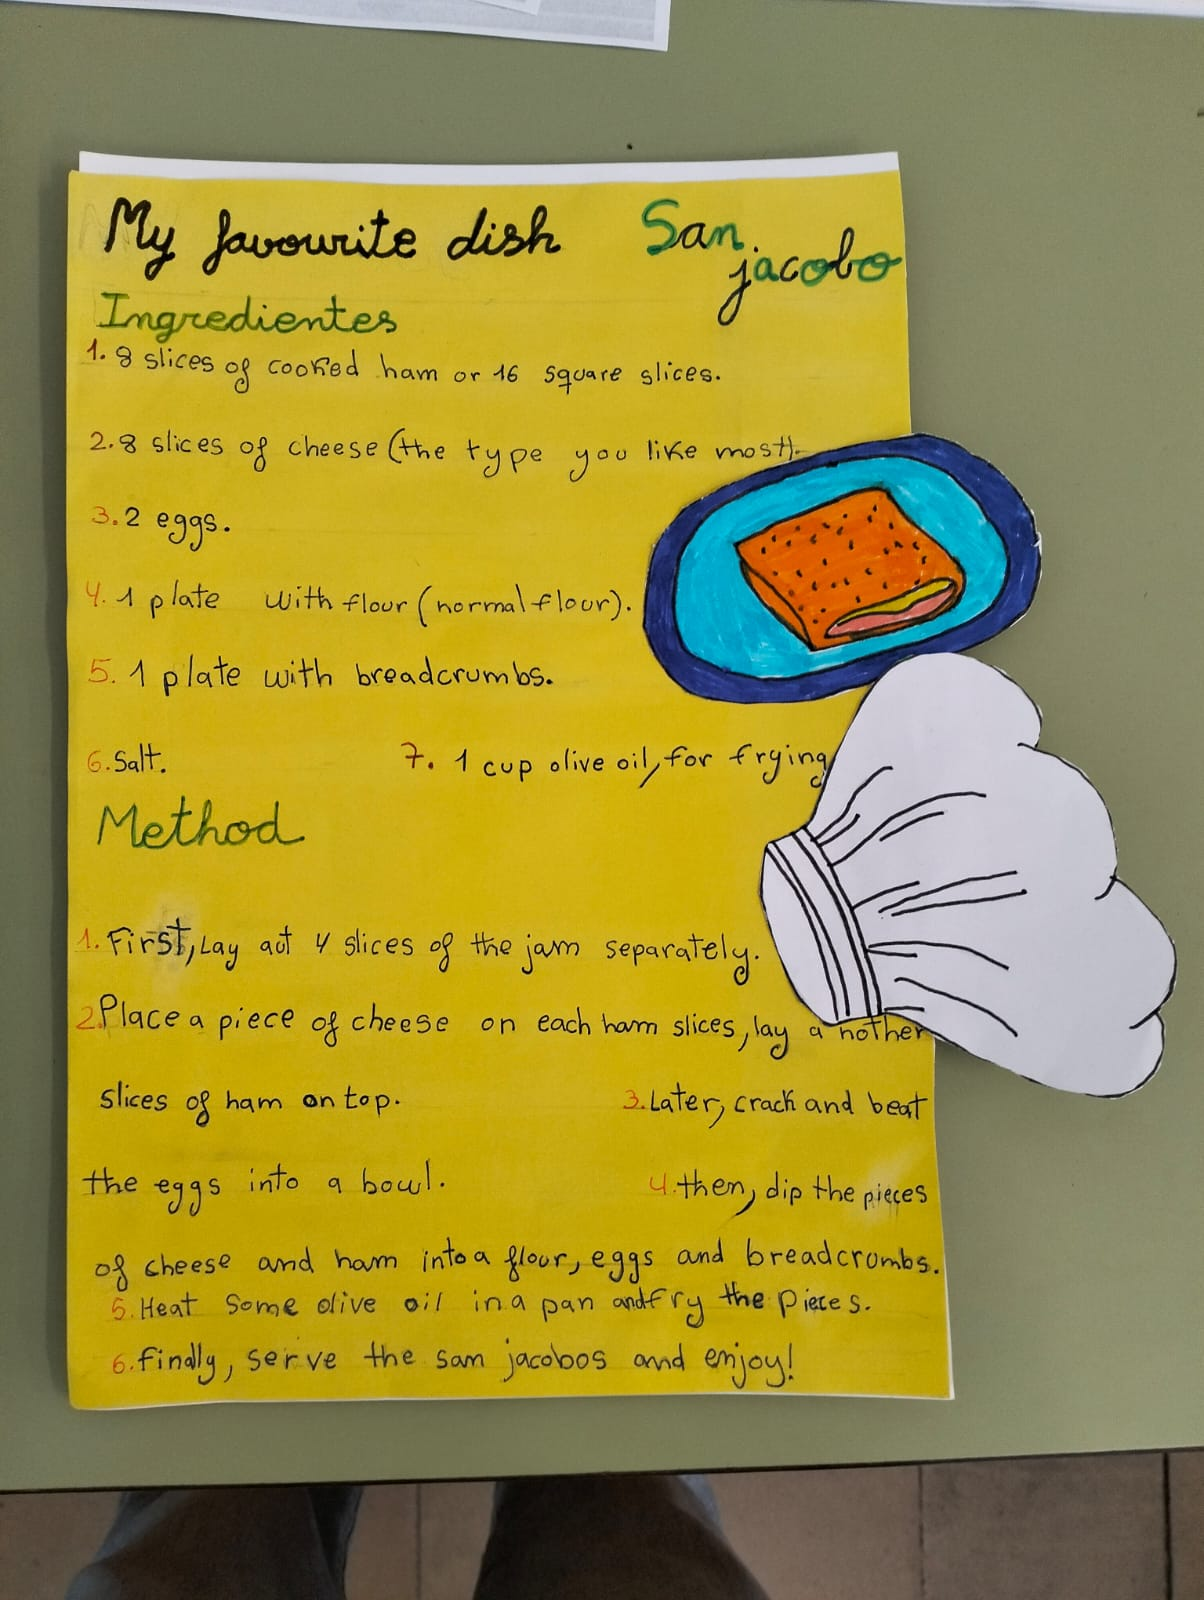 My favourite dish San
jacobo
Ingredientes
1. 8 slices of cooked ham or 16 square slices.
2. 8 slices of cheese (the type you like most).
3. 2 eggs.
4. 1 plate with flour (normal flour).
5. 1 plate with breadcrumbs.
6. Salt. 7. 1 cup olive oil, for frying
Method
1. First, Lay aut 4 slices of the jam separately.
2. Place a piece of cheese on each ham slices, lay a nother
slices of ham on top. 3. Later, crack and beat
the eggs into a bowl. 4. then, dip the pieces
of cheese and ham into a flour, eggs and breadcrombs.
5. Heat some olive oil in a pan and fry the pieces.
6. finally, serve the san jacobos and enjoy!